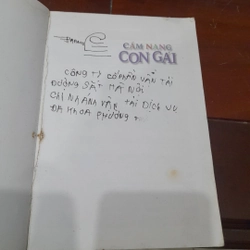 CẨM NANG
CON GÁI
CÔNG TY CỔ PHẦN VẬN TẢI
ĐƯỜNG SẮT HÀ NỘI
CHI NHÁNH VẬN TẢI DỊCH VỤ
ĐA KHOA PHƯỜNG